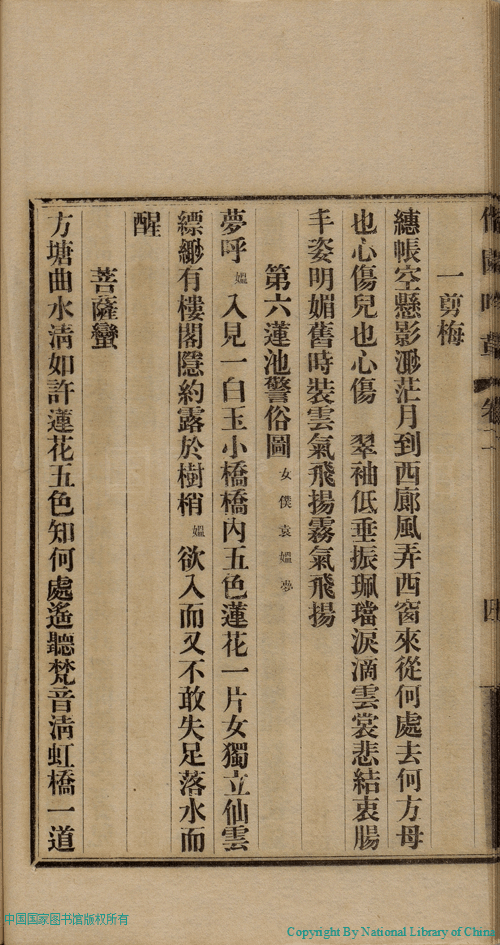 一剪梅
繐帳空懸影渺茫月到西廊風弄西窗來從何處去何方母
也心傷兒也心傷　翠袖低垂振珮璫淚滴雲裳悲結衷腸
丰姿明媚舊時裝雲氣飛揚霧氣飛揚
第六蓮池警俗圖 女僕袁媼夢
夢呼媼入見一白玉小橋橋內五色蓮花一片女獨立仙雲
縹緲有樓閣隱約露於樹梢媼欲入而又不敢失足落水而
醒
菩薩蠻
方塘曲水淸如許蓮花五色知何處遙聽梵音淸虹橋一道
中国国家图书馆版权所有
Copyright By National Library of China